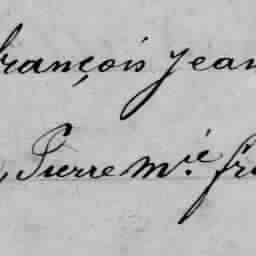 françois jean
, Pierre m.ie fr